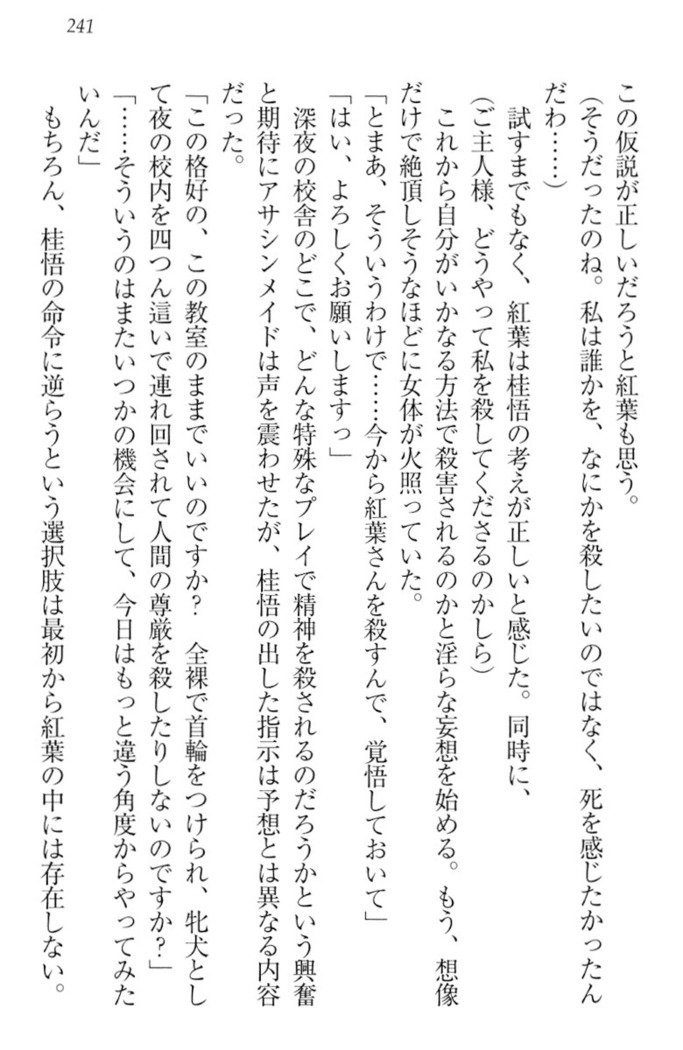 241
この仮説が正しいだろうと紅葉も思う。
（そうだったのね。私は誰かを、なにかを殺したいのではなく、死を感じたかったん
だわ……）
試すまでもなく、紅葉は桂悟の考えが正しいと感じた。同時に、
（ご主人様、どうやって私を殺してくださるのかしら）
これから自分がいかなる方法で殺害されるのかと淫らな妄想を始める。もう、想像
だけで絶頂しそうなほどに女体が火照っていた。
「とまあ、そういうわけで……今から紅葉さんを殺すんで、覚悟しておいて」
「はい、よろしくお願いしますっ」
深夜の校舎のどこで、どんな特殊なプレイで精神を殺されるのだろうかという興奮
と期待にアサシンメイドは声を震わせたが、桂悟の出した指示は予想とは異なる内容
だった。
「この格好の、この教室のままでいいのですか？　全裸で首輪をつけられ、牝犬とし
て夜の校内を四つん這いで連れ回されて人間の尊厳を殺したりしないのですか？」
「……そういうのはまたいつかの機会にして、今日はもっと違う角度からやってみた
いんだ」
もちろん、桂悟の命令に逆らうという選択肢は最初から紅葉の中には存在しない。